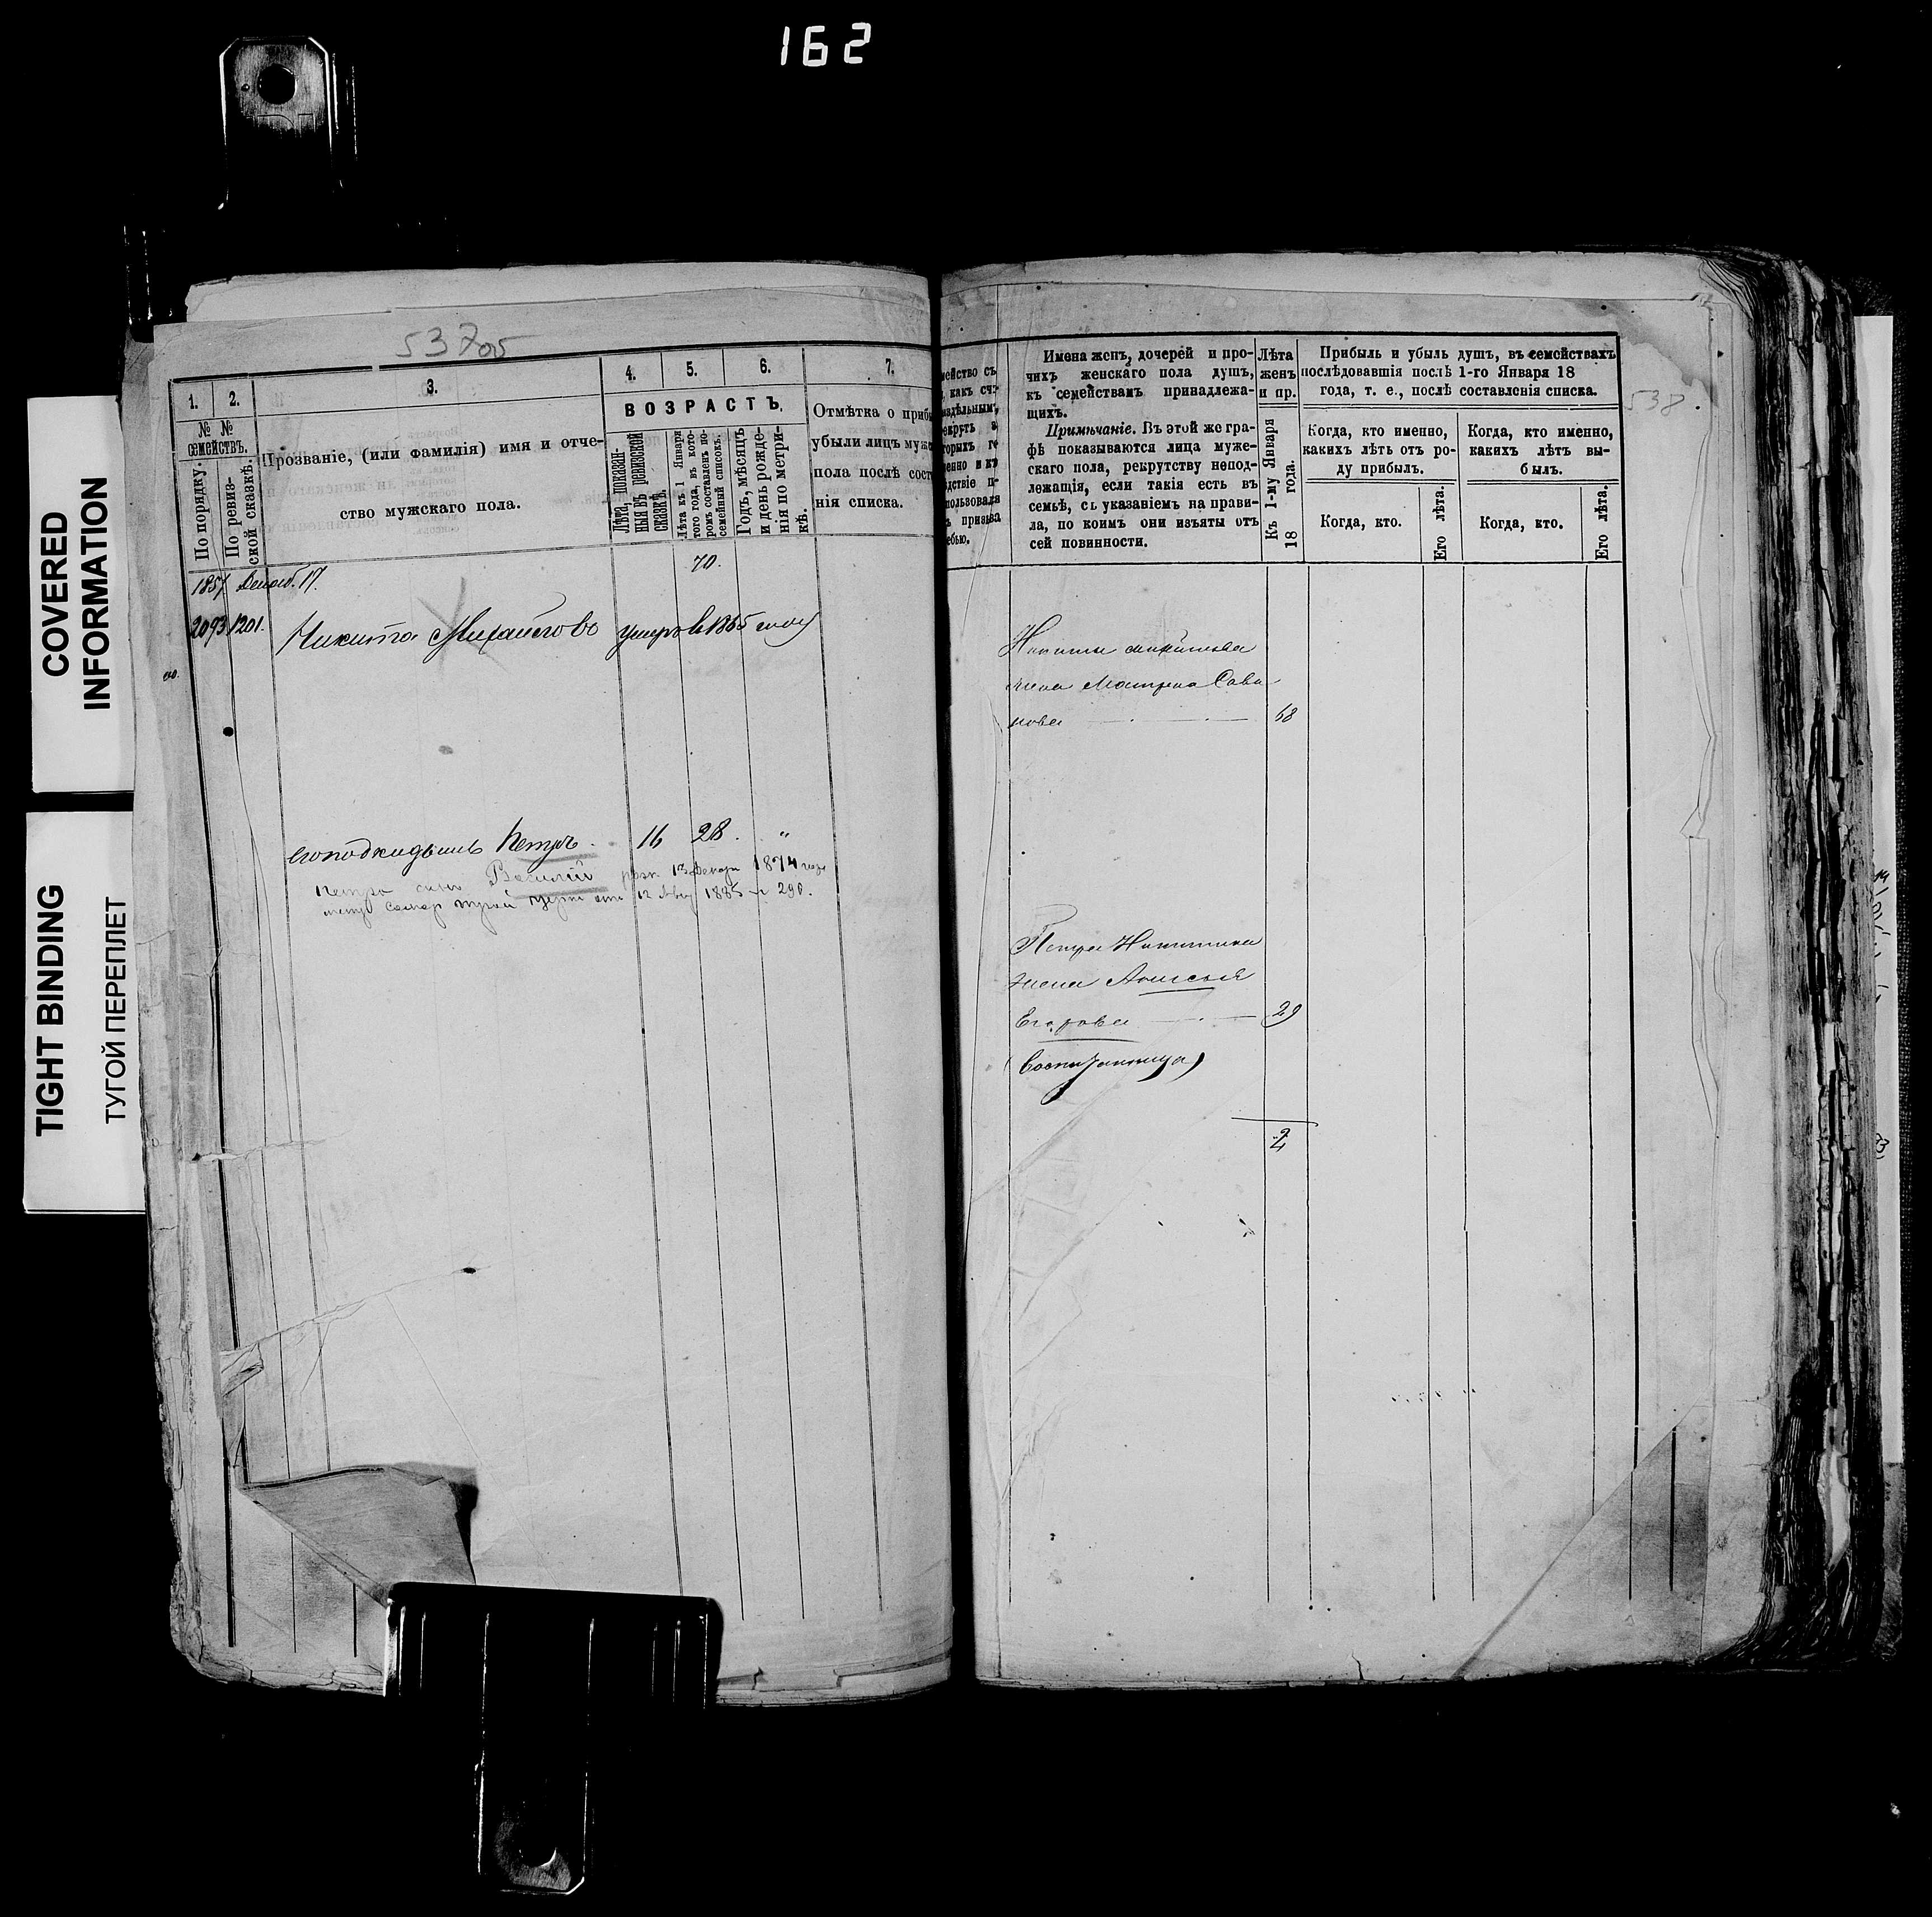 162
COVERED
INFORMATION
TIGHT BINDING
ТУГОЙ ПЕРЕПЛЕТ
537об
1. 2. 3. 4. 5. 6. 7.
№ №
семействъ.
По порядку.
По ревиз-
ской сказкѣ.
Прозваніе, (или фамилія) имя и отче-
ство мужскаго пола.
ВОЗРАСТЪ.
Лѣта, показан-
ныя въ ревизской
сказкѣ.
Лѣта къ 1 Января
того года, въ кото-
ромъ составленъ по-
семейный списокъ.
Годъ, мѣсяцъ
и день рожде-
нія по метри-
кѣ.
Отмѣтка о приб
убыли лицъ муж
пола послѣ сост
нія списка.
70.
1857 17.
2093 1201. Никита Михайловъ умеръ въ 1865 году
его подкидышъ Петръ. 16 28. "
Петра сынъ Василій 1874 года
12 1885 290.
538.
мейство съ
какъ сч
здѣльнымъ
Имена женъ, дочерей и про-
чихъ женскаго пола душъ,
къ семействамъ принадлежа-
щихъ.
Примѣчаніе. Въ этой же гра-
фѣ показываются лица муже-
скаго пола, рекрутству непод-
лежащія, если такія есть въ
семьѣ, съ указаніемъ на прави-
ла, по коимъ они изъяты отъ
сей повинности.
Лѣта
женъ
и пр.
Къ 1-му Января
18 года.
Прибыль и убыль душъ, въ семействахъ
послѣдовавшія послѣ 1-го Января 18
года, т. е., послѣ составленія списка.
Когда, кто именно,
какихъ лѣтъ отъ ро-
ду прибылъ.
Когда, кто.
Его лѣта.
Когда, кто именно,
какихъ лѣтъ вы-
былъ.
Когда, кто.
Его лѣта.
Никиты Михайлова
жена Матрена Сави
нова 68
Петра Никитина
жена Анисья
Егорова 29
(воспитанница)
2